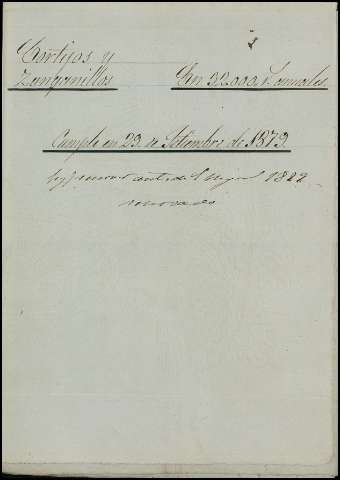 Cortijos y
Zanganillos En 32.000 R. anuales.
Cumple en 29 de Setiembre de 1879
1822
renovado